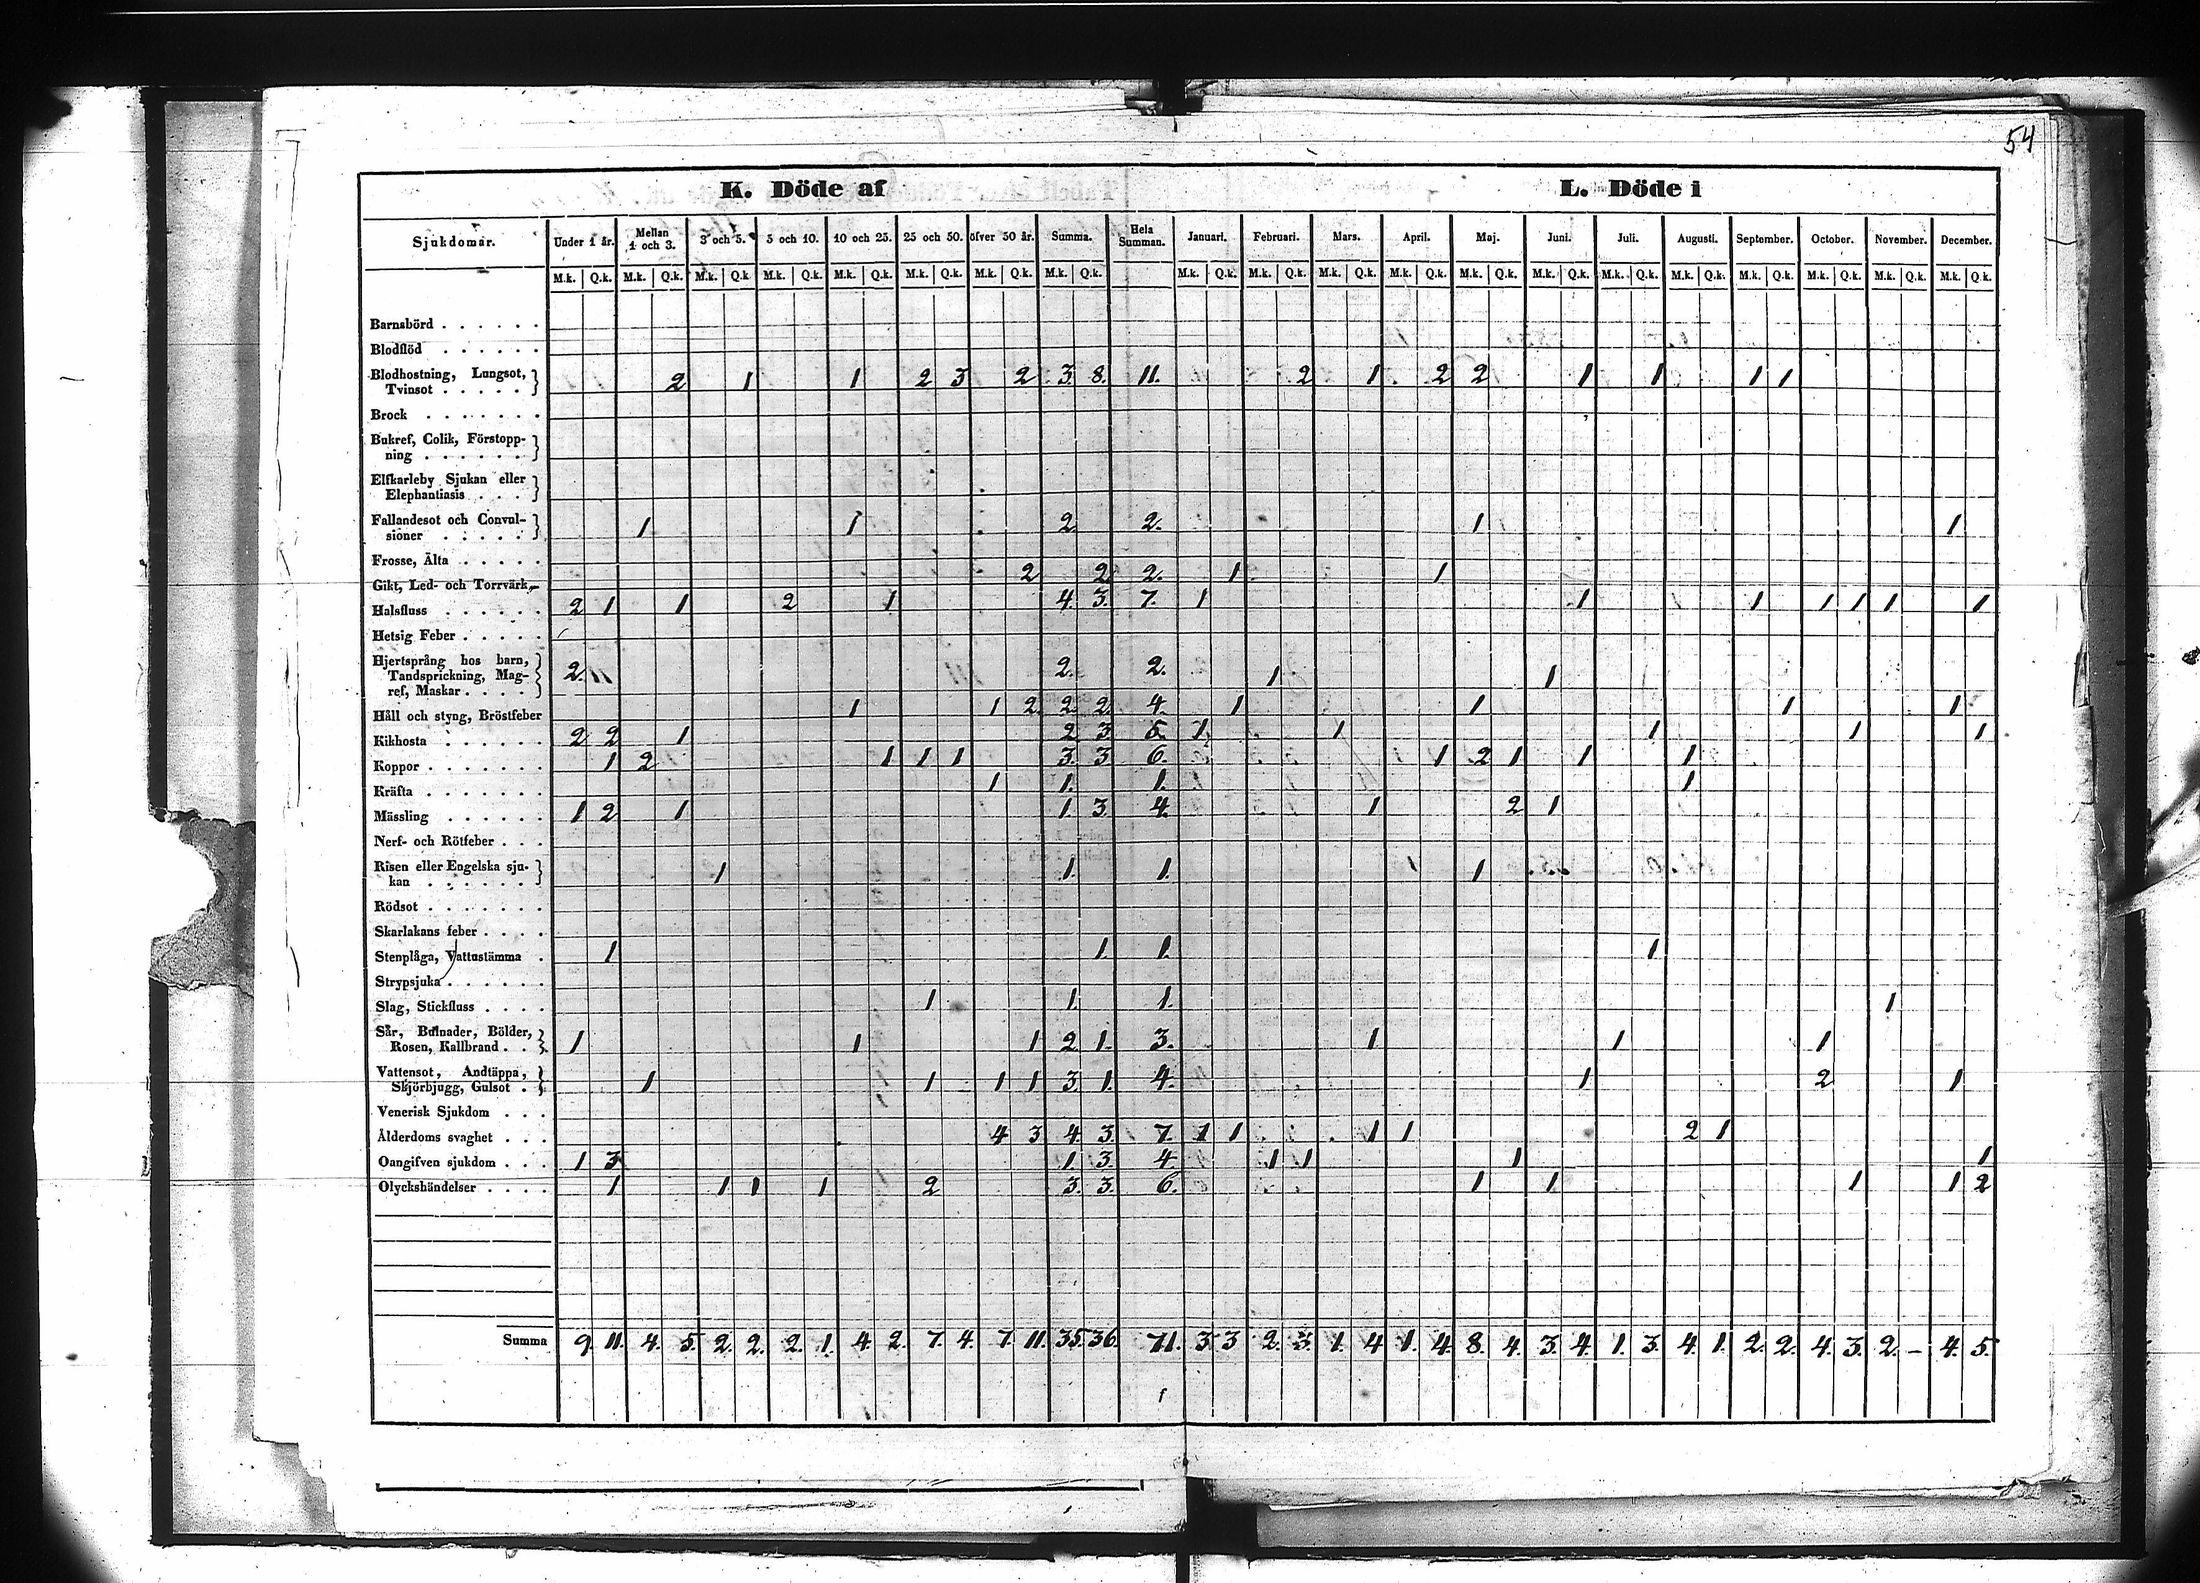 54
K. Döde af L. Döde i
Sjukdomar. Under 1 år. Mellan 1 och 3. 3 och 5. 5 och 10. 10 och 25. 25 och 50. öfver 50 år. Summa. Hela Summan. Januari. Februari. Mars. April. Maj. Juni. Juli. Augusti. September. October. November. December.
M.k. Q.k. M.k. Q.k. M.k. Q.k. M.k. Q.k. M.k. Q.k. M.k. Q.k. M.k. Q.k. M.k. Q.k. M.k. Q.k. M.k. Q.k. M.k. Q.k. M.k. Q.k. M.k. Q.k. M.k. Q.k. M.k. Q.k. M.k. Q.k. M.k. Q.k. M.k. Q.k. M.k. Q.k. M.k. Q.k.
Barnsbörd
Blodflöd
Blodhostning, Lungsot,
Tvinsot 2 1 1 2 3 2 3. 8. 11. 2 1 2 2 1 1 1 1
Brock
Bukref, Colik, Förstopp-
ning
Elfkarleby Sjukan eller
Elephantiasis
Fallandesot och Convul-
sioner 1 1 2. 2. 1 1
Frosse, Älta
Gikt, Led- och Torrvärk 2 2. 2. 1 1
Halsfluss 2 1 1 2 1 4. 3. 7. 1 1 1 1 1 1 1
Hetsig Feber
Hjertsprång hos barn,
Tandsprickning, Mag-
ref, Maskar 2. 2. 2. 1 1
Håll och styng, Bröstfeber 1 1 2 2. 2. 4. 1 1 1 1
Kikhosta 2 2 1 2 3. 5. 1 1 1 1 1
Koppor 1 2 1 1 1 3. 3 6. 1 2 1 1 1
Kräfta 1 1. 1. 1
Mässling 1 2 1 1. 3 4. 1 2 1
Nerf- och Rötfeber
Risen eller Engelska sju-
kan 1 1. 1. 1
Rödsot
Skarlakans feber
Stenplåga, Vattustämma 1 1 1. 1
Strypsjuka
Slag, Stickfluss 1 1. 1. 1
Sår, Bulnader, Bölder,
Rosen, Kallbrand 1 1 1 2 1. 3. 1 1 1
Vattensot, Andtäppa,
Skjörbjugg, Gulsot 1 1 1 1 3. 1. 4. 1 2 1
Venerisk Sjukdom
Ålderdoms svaghet 4 3 4. 3. 7. 1 1 1 1 2 1
Oangifven sjukdom 1 3 1. 3. 4. 1 1 1 1
Olyckshändelser 1 1 1 1 2 3. 3. 6. 1 1 1 1 2
Summa 9. 11. 4. 5. 2. 2. 2. 1. 4. 2. 7. 4. 7. 11. 35. 36. 71. 3 3 2. 3. 1. 4 1. 4. 8. 4. 3. 4. 1. 3. 4. 1. 2. 2. 4. 3. 2. – 4. 5.